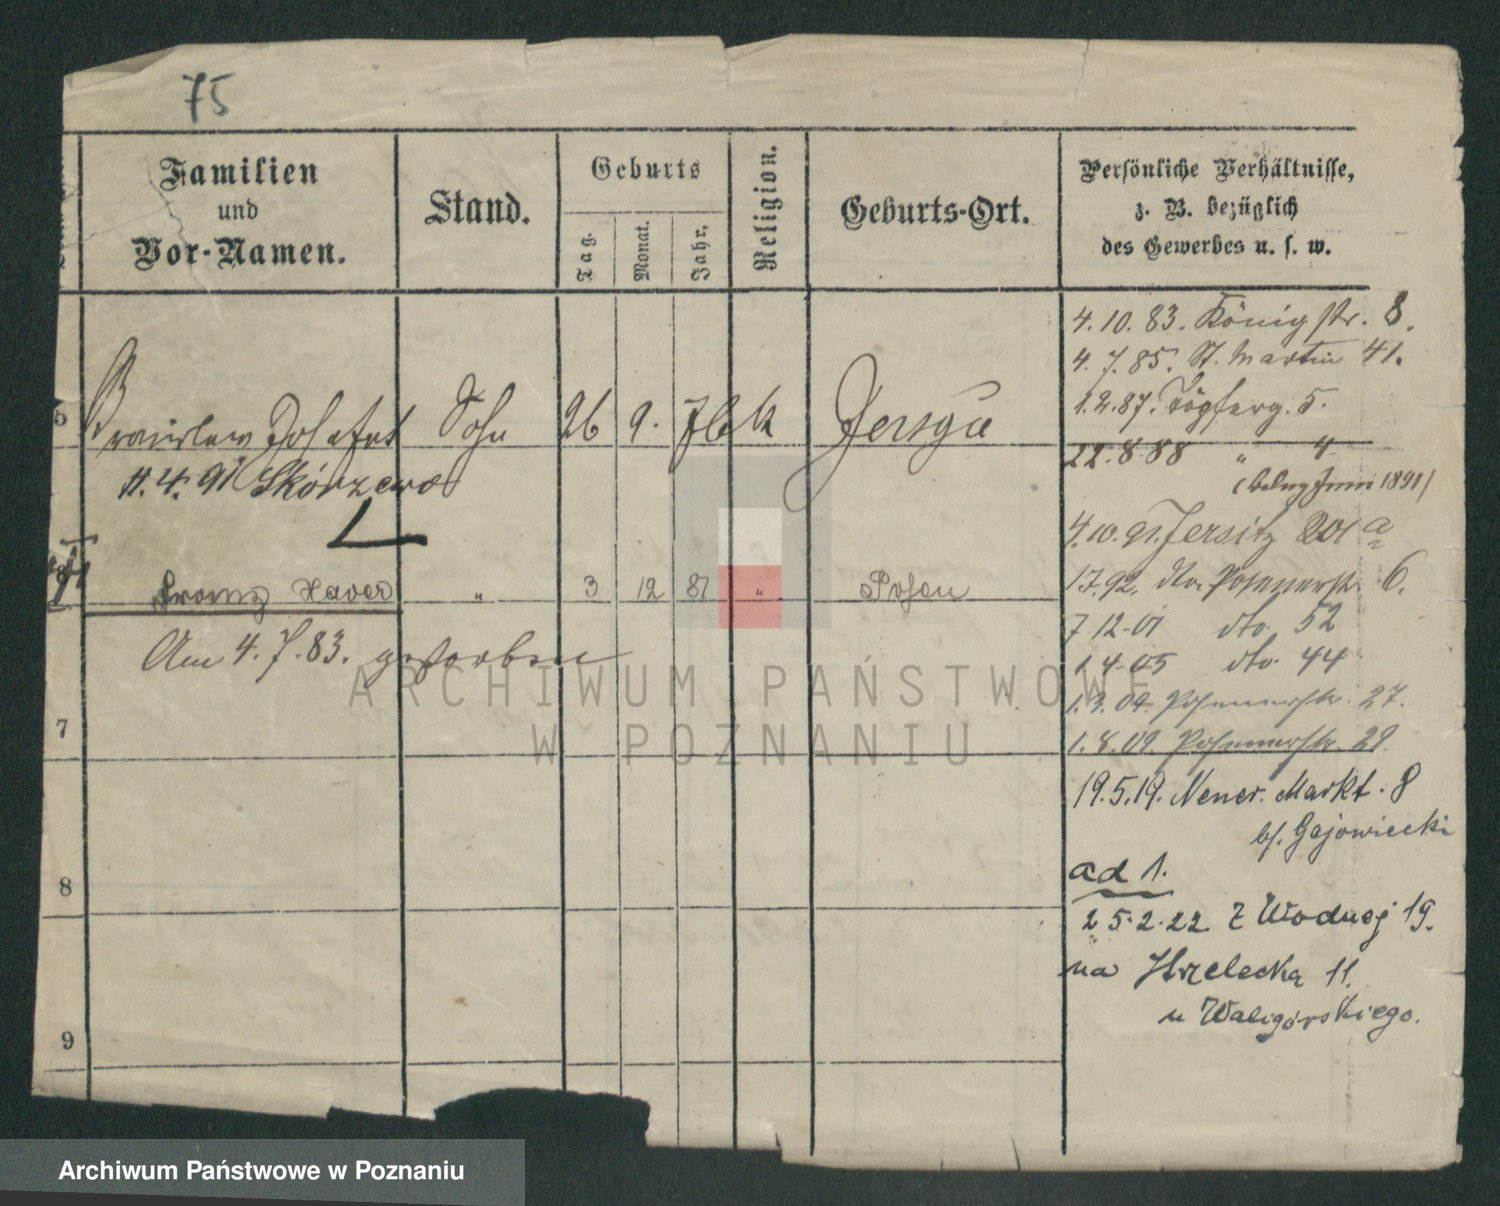 75
Familien
und
Vor-Namen.
Stand.
Geburts
Tag.
Monat.
Jahr.
Religion.
Geburts-Ort.
Persönliche Verhältnisse,
z. B. bezüglich
des Gewerbes u. s. w.
4.10.83. Königstr. 8.
4.7.85. St. Martin 41.
1.2.87. Töpferg. 5.
5
Sohn 26 9. k Jersyce
22.8.88 " "
11.4.91 Skórzewo
Juni 1891)
4.10.91. Jersitz 201 a
Franz Xaver " 3 12 81 " Posen
1.7.92. dto. Posenerstr. 6.
Am 4.7.83. gestorben
7.12.01 dto. 52
1.4.05 dto. 44
7
Posenerstr. 27.
Posenerstr. 29.
19.5.19. Neuer. Markt. 8
bf. Gajowiecki
ad 1.
8
25.2.22 Z Wodnej 19.
na Strzelecką 11.
u Waligórskiego.
9
ARCHIWUM PAŃSTWOWE
W POZNANIU
Archiwum Państwowe w Poznaniu